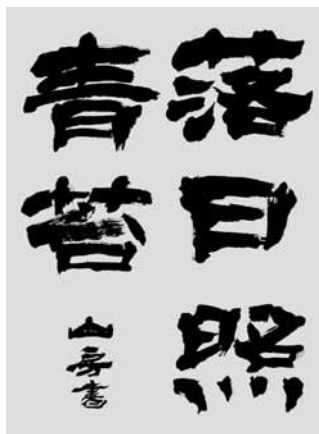 落日照
青苔
山房書